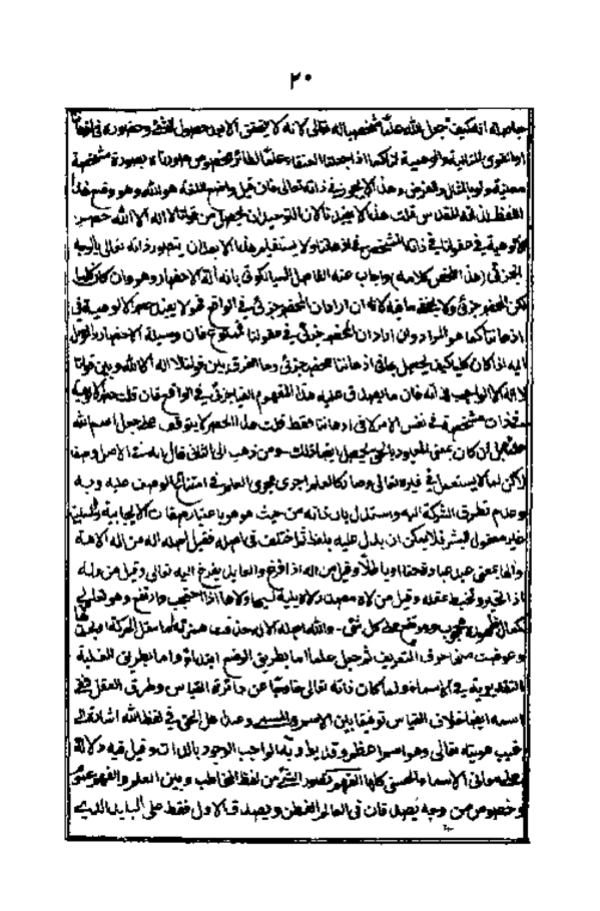 ٢٠
حاصله انه كيف جعل الله علما شخصيا له تعالى لانه لا يتحقق الا بعد حصول الشئ وحضوره فى اذهاننا
او القوى المثالية والوهمية لنا كما اذا جعلنا العنقاء علما لطائر مخصوص من صورناه بصورة مشخصة
وهذا لا يجوز فى ذاته تعالى فان قيل واضع اللغة هو الله وهو وضع هذا
اللفظ لذاته المقدس قلت هذا لا يفيد لنا لان التوحيد ان يحصل من قولنا لا اله الا الله حصر
الالوهية فى عقولنا فى ذاته المشخص فى اذهاننا ولا يستقيم هذا الا بعد ان يتصور ذاته تعالى بالوجه
الجزئى (هذا ملخص كلامه) واجاب عنه الفاضل السيالكوتى بانه آلة الاحضار وهو وان كان كليا
لكن المحضر جزئى ولا يخفى ما فيه لانه ان اراد ان المحضر جزئى فى الواقع فهو لا يفيد حصر الالوهية فى
اذهاننا كما هو المراد وان اراد ان المحضر جزئى فى عقولنا فممنوع فان وسيلة الاحضار والموصل
اليه اذا كان كليا كيف يحصل بها فى اذهاننا محضر جزئى وما الفرق بين قولنا لا اله الا الله وبين قولنا
لا اله الا الواجب لذاته فان ما يصدق عليه هذا المفهوم ايضا جزئى فى الواقع فان قلت حصر الالوهية
فى ذات مشخصة فى نفس الامر لا فى اذهاننا فقط قلت هذا الحصر لا يتوقف على جعل اسم الله
علما بل ان كان بمعنى المعبود بالحق يحصل ايضا ذلك - ومن ذهب الى الثانى قال انه فى الاصل وصف
لكن لما لا يستعمل فى غيره تعالى وصار كالعلم اجرى مجرى العلم فى امتناع الوصف عليه وبه
وعدم تطرق الشركة اليه واستدل بان ذاته من حيث هو هو بلا اعتبار صفات الايجابية والسلبية
غير معقول للبشر فلا يمكن ان يدل عليه بلفظ ثم اختلف فى اصله فقيل اصله اله من اله الاهة
والها بمعنى عبد عبادة حقا او باطلا وقيل من اله اذا فزع والعابد يفزع اليه تعالى وقيل من وله
اذا تحير وتخبط عقله وقيل من لاه مصدر لاه يليه ليها ولاها اذا احتجب وارتفع وهو تعالى
لكمال ظهوره محجوب ومرتفع على كل شئ - والله اصله الاله حذفت همزته
وعوضت منها حرف التعريف ثم جعل علما اما بطريق الوضع ابتداء واما بطريق الغلبة
التقديرية فى الاسماء ولما كان ذاته تعالى خارجا عن دائرة القياس وطرق العقل ففى
اسمه ايضا خلاف القياس توفيقا بين الاسم والمسمى وعند اهل الحق فى لفظ الله اشارة الى
غيب هويته تعالى وهو اسم اعظم وقد يطلق به الواجب الوجود بالذات وقيل فيه دلالة
على معانى الاسماء الحسنى كلها الفهم تصور الشئ من لفظ المخاطب وبين العلم والفهم عموم
وخصوص من وجه يصدقان فى العالم الفطن ويصدق الاول فقط على البليد الذى